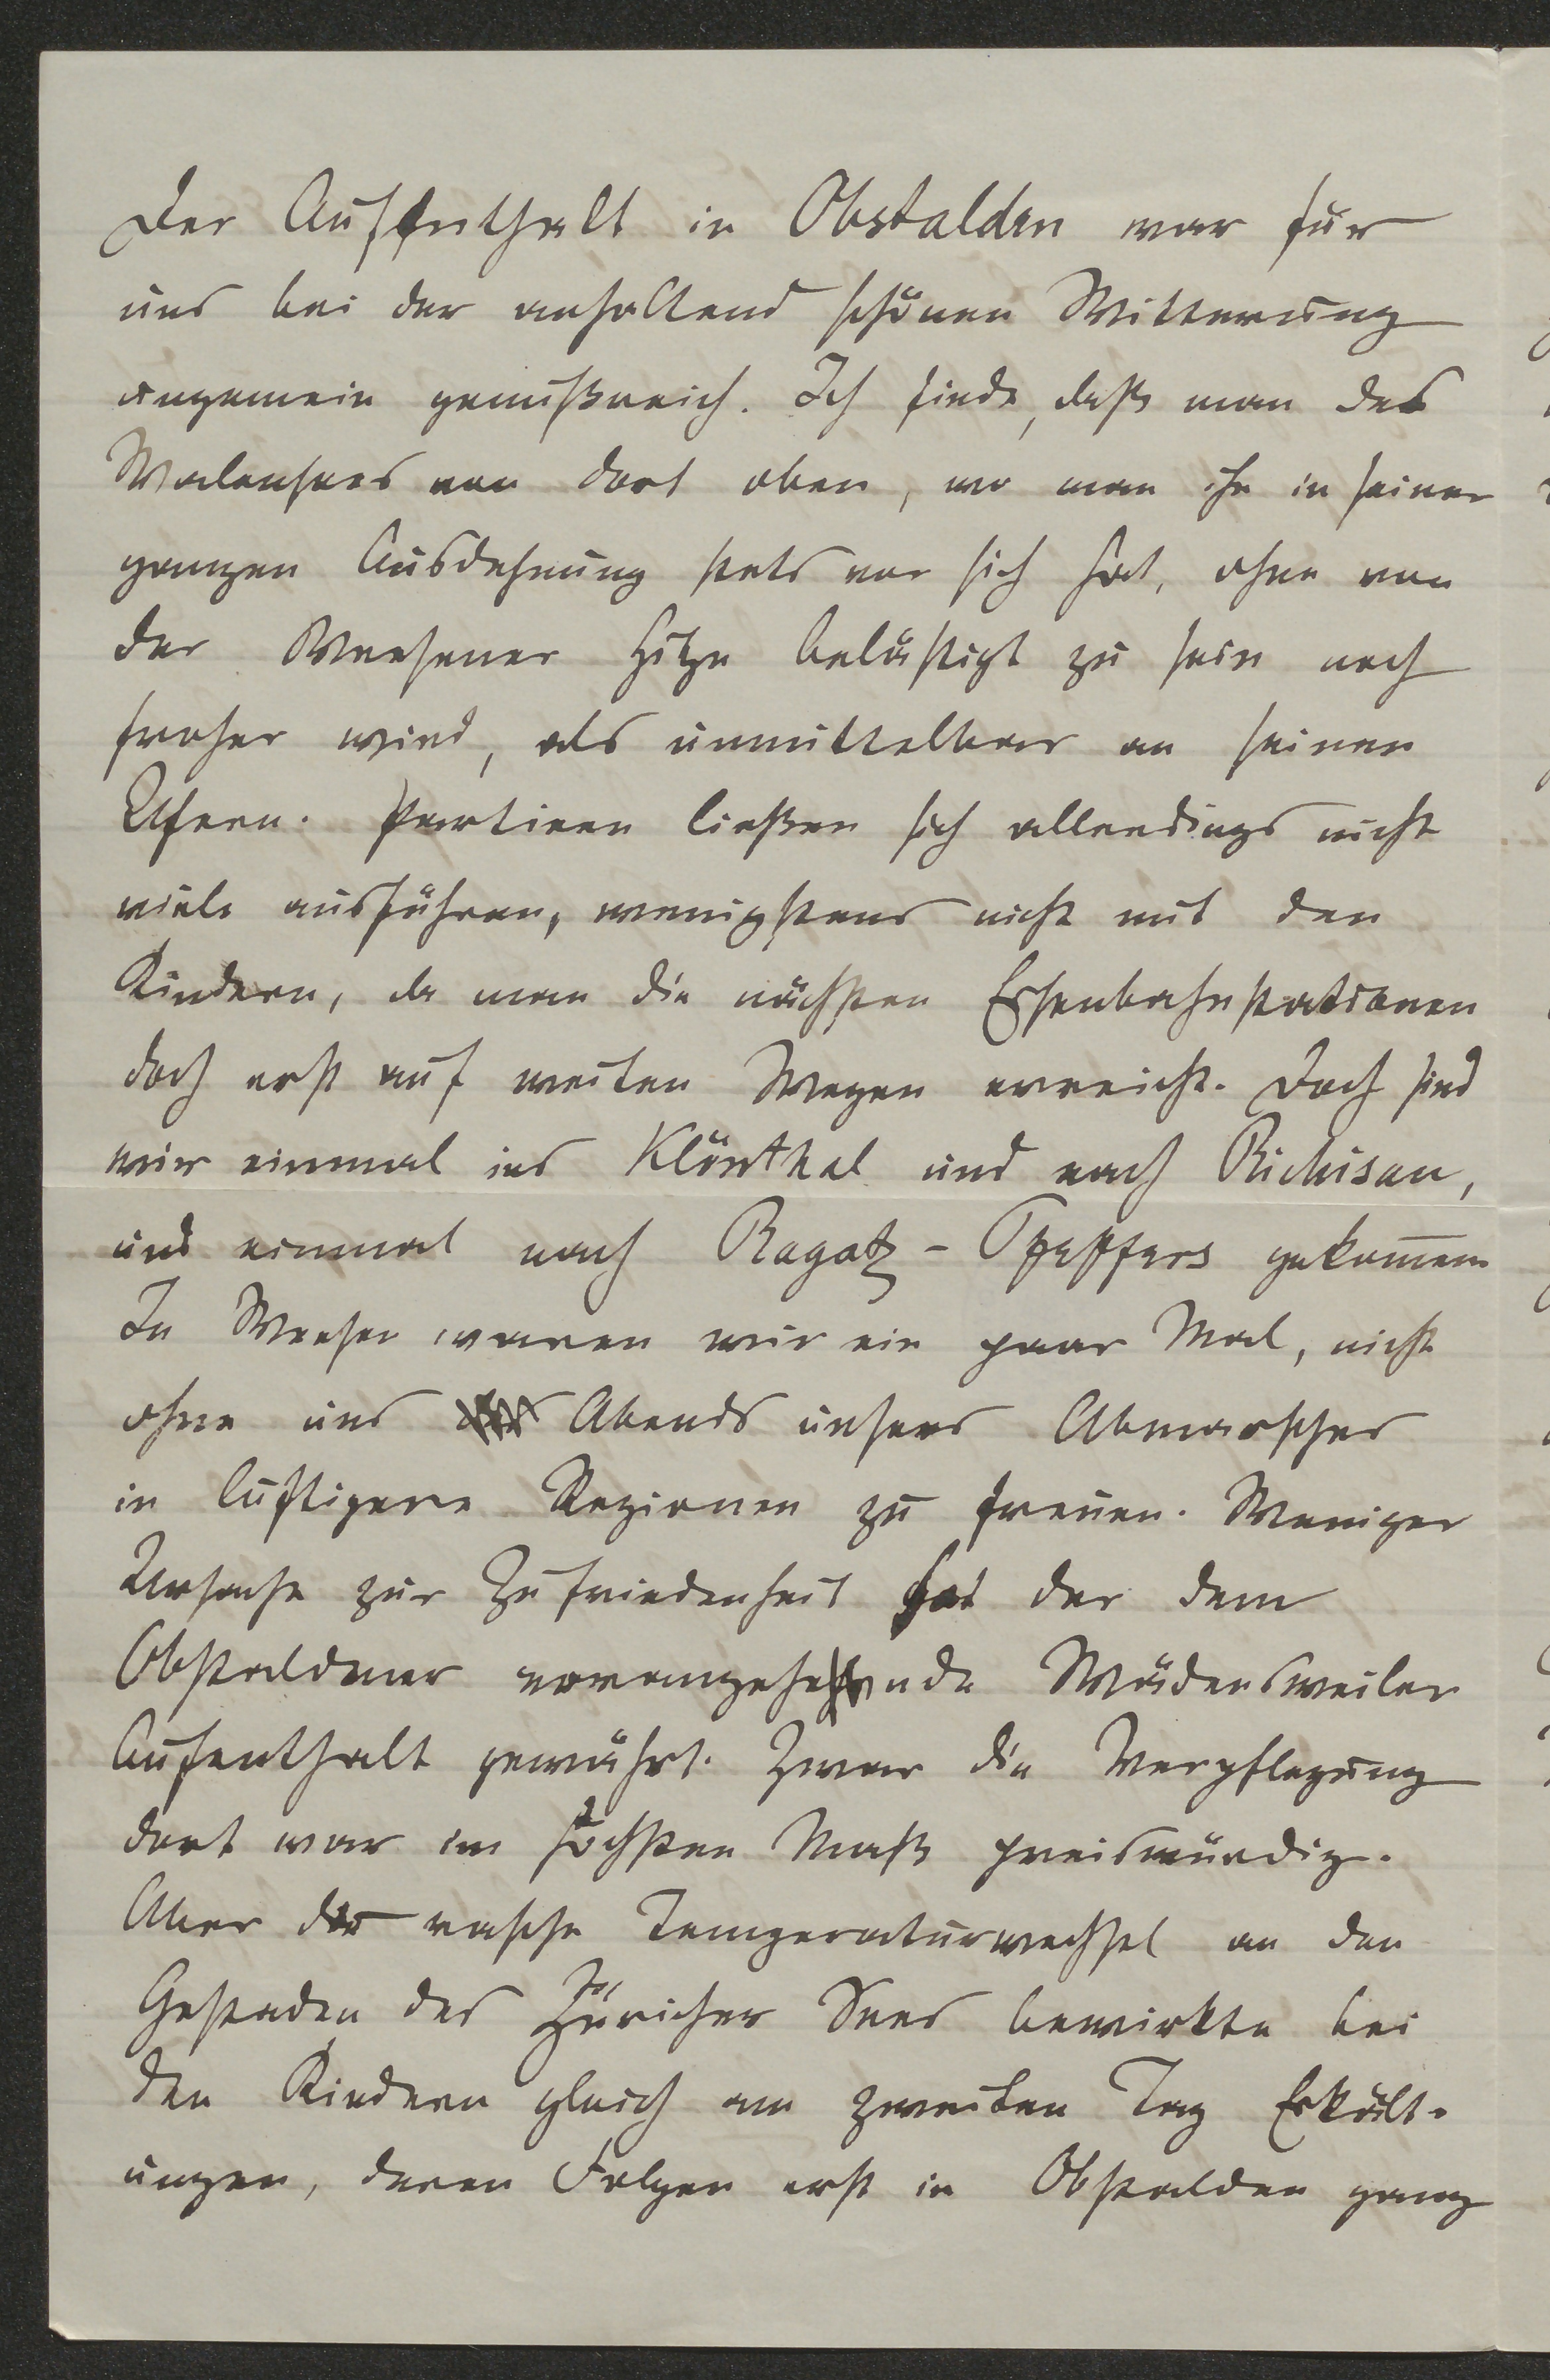 Der Aufenthalt in Obstalden war für
uns bei der anhaltend schönen Witterung
ungemein genußreich. Ich finde, daß man des
Walensees von dort oben, wo man ihn in seiner
ganzen Ausdehnung stets vor sich hat, ohne von
der Weesener Hitze belästigt zu sein noch
froher wird, als unmittelbar an seinen
Ufern. Partieen ließen sich allerdings nicht
viele ausführen, wenigstens nicht mit den
Kindern, da man die nächsten Eisenbahnstationen
doch erst auf weiten Wegen erreicht. Doch sind
wir einmal ins Klönthal und nach Richisau,
und einmal nach Ragatz-Pfeffers gekommen
In Weesen waren wir ein paar Mal, nicht
ohne uns Abends unseres Abmarsches
in luftigere Regionen zu freuen. Weniger
Ursache zur Zufriedenheit hat der dem
Obstaldener vorangehende Wädensweiler
Aufenthalt gewährt. Zwar die Verpflegung
dort war im höchsten Maß preiswürdig.
Aber der rasche Temperaturwechsel an den
Gestaden des Züricher Sees bewirkte bei
den Kindern gleich am zweiten Tag Erkält-
ungen, deren Folgen erst in Obstalden ganz